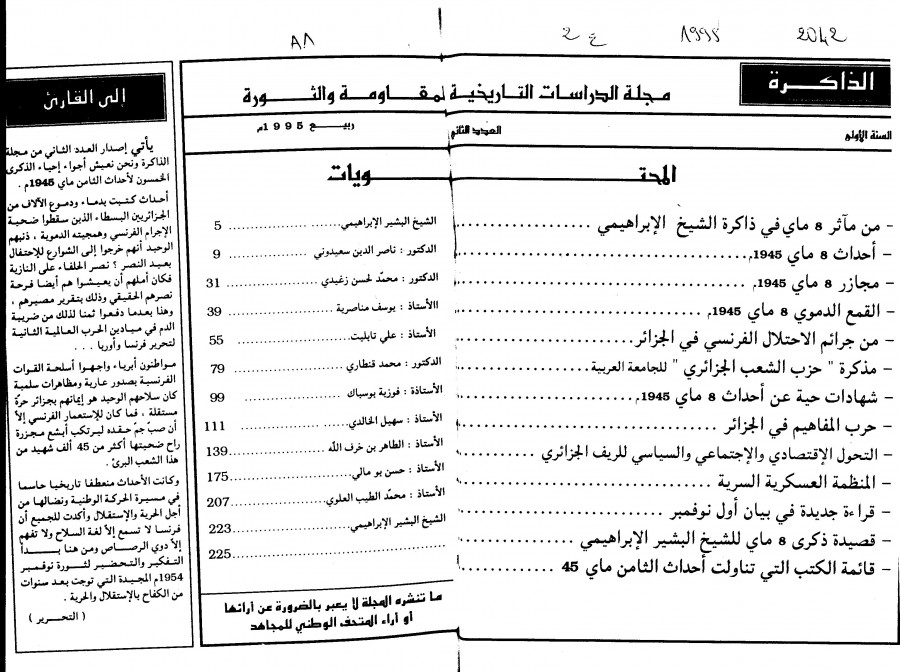 2042
1995
ع 2
A1
الذاكرة
مجلة الدراسات التاريخية لمقاومة والثورة
السنة الأولى
العدد الثاني
ربيع 1995م
المحتويات
- من مآثر 8 ماي في ذاكرة الشيخ الإبراهيمي .................. الشيخ البشير الإبراهيمي .................. 5
- أحداث 8 ماي 1945م .................. الدكتور : ناصر الدين سعيدوني .................. 9
- مجازر 8 ماي 1945م .................. الدكتور : محمّد لحسن زغيدي .................. 31
- القمع الدموي 8 ماي 1945م .................. االأستاذ : يوسف مناصرية .................. 39
- من جرائم الاحتلال الفرنسي في الجزائر .................. الأستاذ : علي تابليت .................. 55
- مذكرة " حزب الشعب الجزائري " للجامعة العربية .................. الدكتور : محمد قنطاري .................. 79
- شهادات حية عن أحداث 8 ماي 1945م .................. الأستاذة : فوزية بوسباك .................. 99
- حرب المفاهيم في الجزائر .................. الأستاذ : سهيل الخالدي .................. 111
- التحول الإقتصادي والإجتماعي والسياسي للريف الجزائري .................. الأستاذ : الطاهر بن خرف اللّه .................. 139
- المنظمة العسكرية السرية .................. الأستاذ : حسن بو مالي .................. 175
- قراءة جديدة في بيان أول نوفمبر .................. الأستاذ : محمّد الطيب العلوي .................. 207
- قصيدة ذكرى 8 ماي للشيخ البشير الإبراهيمي .................. الشيخ البشير الإبراهيمي .................. 223
- قائمة الكتب التي تناولت أحداث الثامن ماي 45 .................. 225
ما تنشره المجلة لا يعبر بالضرورة عن آرائها
أو آراء المتحف الوطني للمجاهد
إلى القارئ
يأتي إصدار العدد الثاني من مجلة
الذاكرة ونحن نعيش أجواء إحياء الذكرى
الخمسون لأحداث الثامن ماي 1945م .
أحداث كتبت بدماء ودموع الآلاف من
الجزائريين البسطاء الذين سقطوا ضحية
الإجرام الفرنسي وهمجيته الدموية ، ذنبهم
الوحيد أنهم خرجوا إلى الشوارع للإحتفال
بعيد النصر ؟ نصر الحلفاء على النازية
فكان أملهم أن يعيشوا هم أيضا فرحة
نصرهم الحقيقي وذلك بتقرير مصيرهم ،
وهذا بعدما دفعوا ثمنا لذلك من ضريبة
الدم في ميادين الحرب العالمية الثانية
لتحرير فرنسا وأوربا . . .
مواطنون أبرياء واجهوا أسلحة القوات
الفرنسية بصدور عارية ومظاهرات سلمية
كان سلاحهم الوحيد هو إيمانهم بجزائر حرّة
مستقلة ، فما كان للإستعمار الفرنسي إلاّ
أن صبّ جمّ حقده ليرتكب أبشع مجزرة
راح ضحيتها أكثر من 45 ألف شهيد من
هذا الشعب البرئ .
وكانت الأحداث منعطفا تاريخيا حاسما
في مسيرة الحركة الوطنية ونضالها من
أجل الحرية والإستقلال وأكدت للجميع أن
فرنسا لا تسمع إلاّ لغة السلاح ولا تفهم
إلاّ دوي الرصاص ومن هنا بدأ
التفكير والتحضير لثورة نوفمبر
1954م المجيدة التي توجت بعد سنوات
من الكفاح بالإستقلال والحرية .
( التحرير )